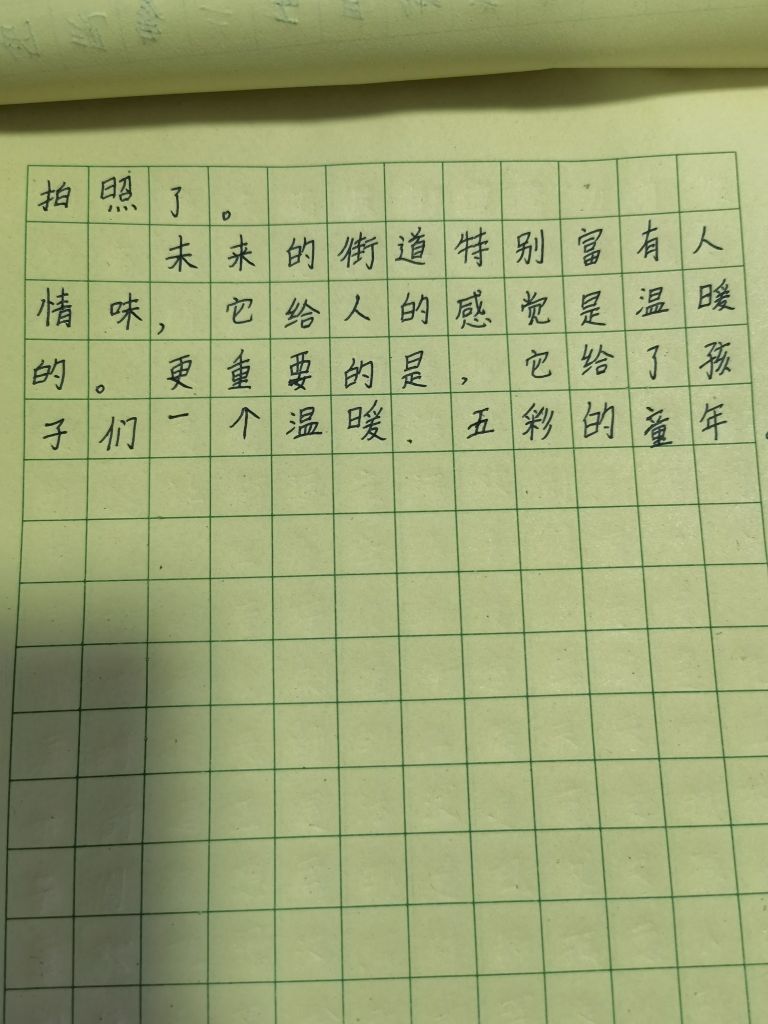 拍照了。
未来的街道特别富有人
情味，它给人的感觉是温暖
的。更重要的是，它给了孩
子们一个温暖、五彩的童年。